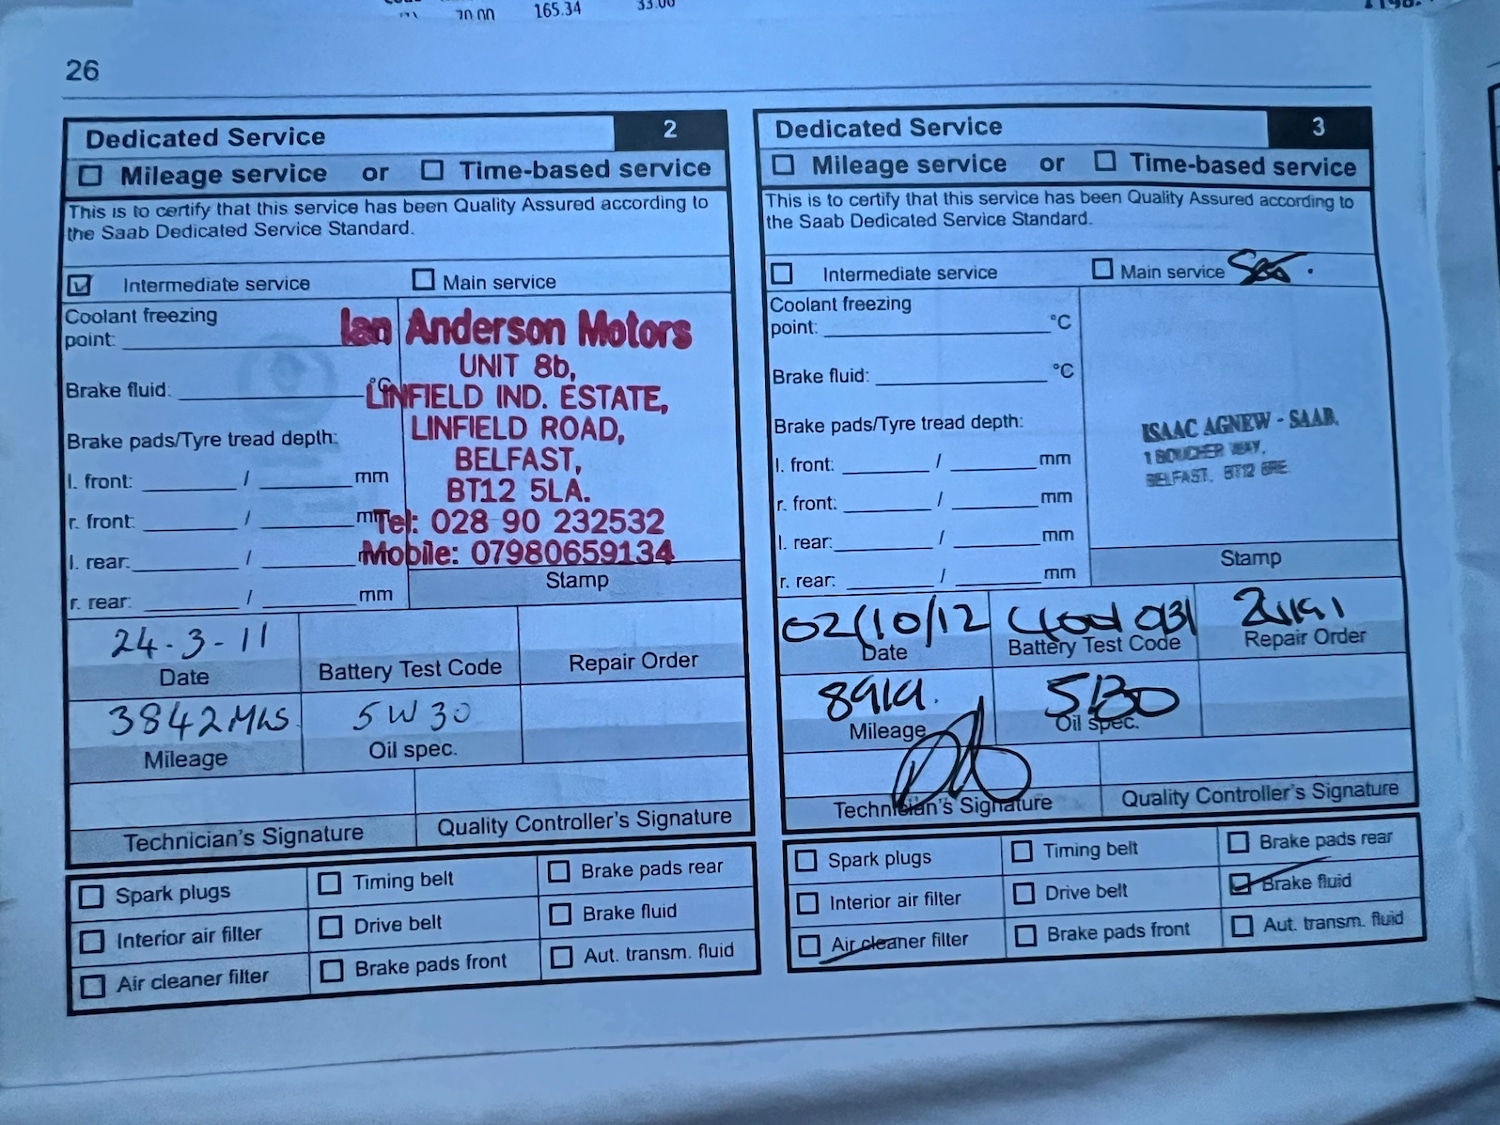 70.00 165.34 33.00
26
Dedicated Service 2
Mileage service or Time-based service
This is to certify that this service has been Quality Assured according to
the Saab Dedicated Service Standard.
Intermediate service Main service
Coolant freezing
point:
°C
Brake fluid:
Brake pads/Tyre tread depth:
l. front: / mm
r. front: / mm
l. rear: /
r. rear: / mm
Ian Anderson Motors
UNIT 8b,
LINFIELD IND. ESTATE,
LINFIELD ROAD,
BELFAST,
BT12 5LA.
Tel: 028 90 232532
Mobile: 07980659134
Stamp
24-3-11
Date Battery Test Code Repair Order
3842 Mls 5W30
Mileage Oil spec.
Technician's Signature Quality Controller's Signature
Spark plugs Timing belt Brake pads rear
Interior air filter Drive belt Brake fluid
Air cleaner filter Brake pads front Aut. transm. fluid
Dedicated Service 3
Mileage service or Time-based service
This is to certify that this service has been Quality Assured according to
the Saab Dedicated Service Standard.
Intermediate service Main service
Coolant freezing
point: °C
Brake fluid: °C
Brake pads/Tyre tread depth:
l. front: / mm
r. front: / mm
l. rear: / mm
r. rear: / mm
ISAAC AGNEW - SAAB,
1 BOUCHER WAY,
BELFAST, BT12 6RE
Stamp
02/10/12
Date Battery Test Code Repair Order
Mileage Oil spec.
Technician's Signature Quality Controller's Signature
Spark plugs Timing belt Brake pads rear
Interior air filter Drive belt Brake fluid
Air cleaner filter Brake pads front Aut. transm. fluid